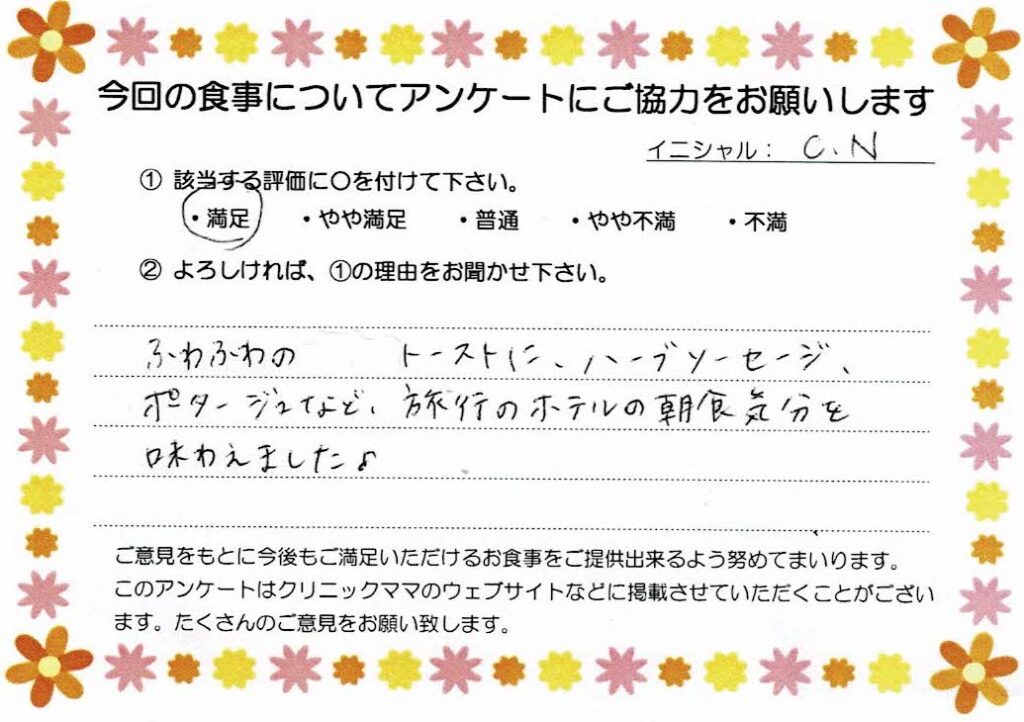 今回の食事についてアンケートにご協力をお願いします
イニシャル： C.N
① 該当する評価に〇を付けて下さい。
・満足 ・やや満足 ・普通 ・やや不満 ・不満
② よろしければ、①の理由をお聞かせ下さい。
ふわふわの トーストに、ハーブソーセージ、
ポタージュなど、旅行のホテルの朝食気分を
味わえました♪
ご意見をもとに今後もご満足いただけるお食事をご提供出来るよう努めてまいります。
このアンケートはクリニックママのウェブサイトなどに掲載させていただくことがござい
ます。たくさんのご意見をお願い致します。